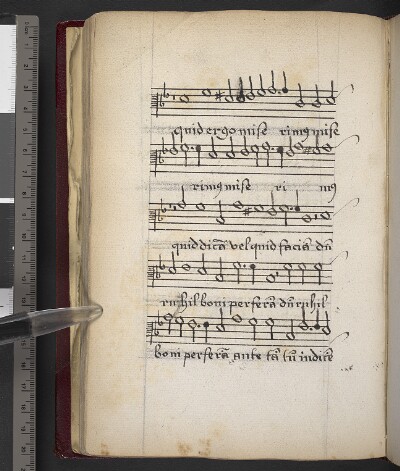 quid ergo mise rimꝯ mise
rimꝯ mise ri mꝯ
quid dicā vel quid faciā dū
nihil boni perferā dū nihil
boni perferā ante tā tū iudice